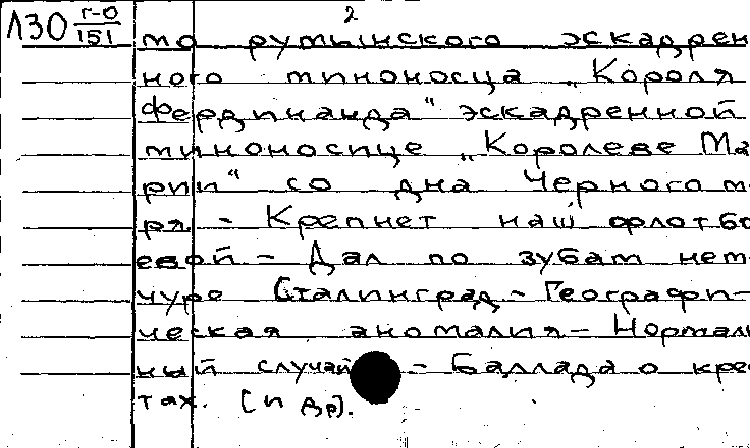 Л30 г-О/151
2
мо румынского эскадрен
ного миноносца „Короля
Фердинанда" эскадренной
миноносице „Королеве Ма
рии" со дна Черного мо
ря. - Крепнет наш флот бо
евой - Дал по зубам нем
чуре Сталинград. - Географи-
ческая аномалия - Нормаль
ный случай - Баллада о кре
тах. [и др].